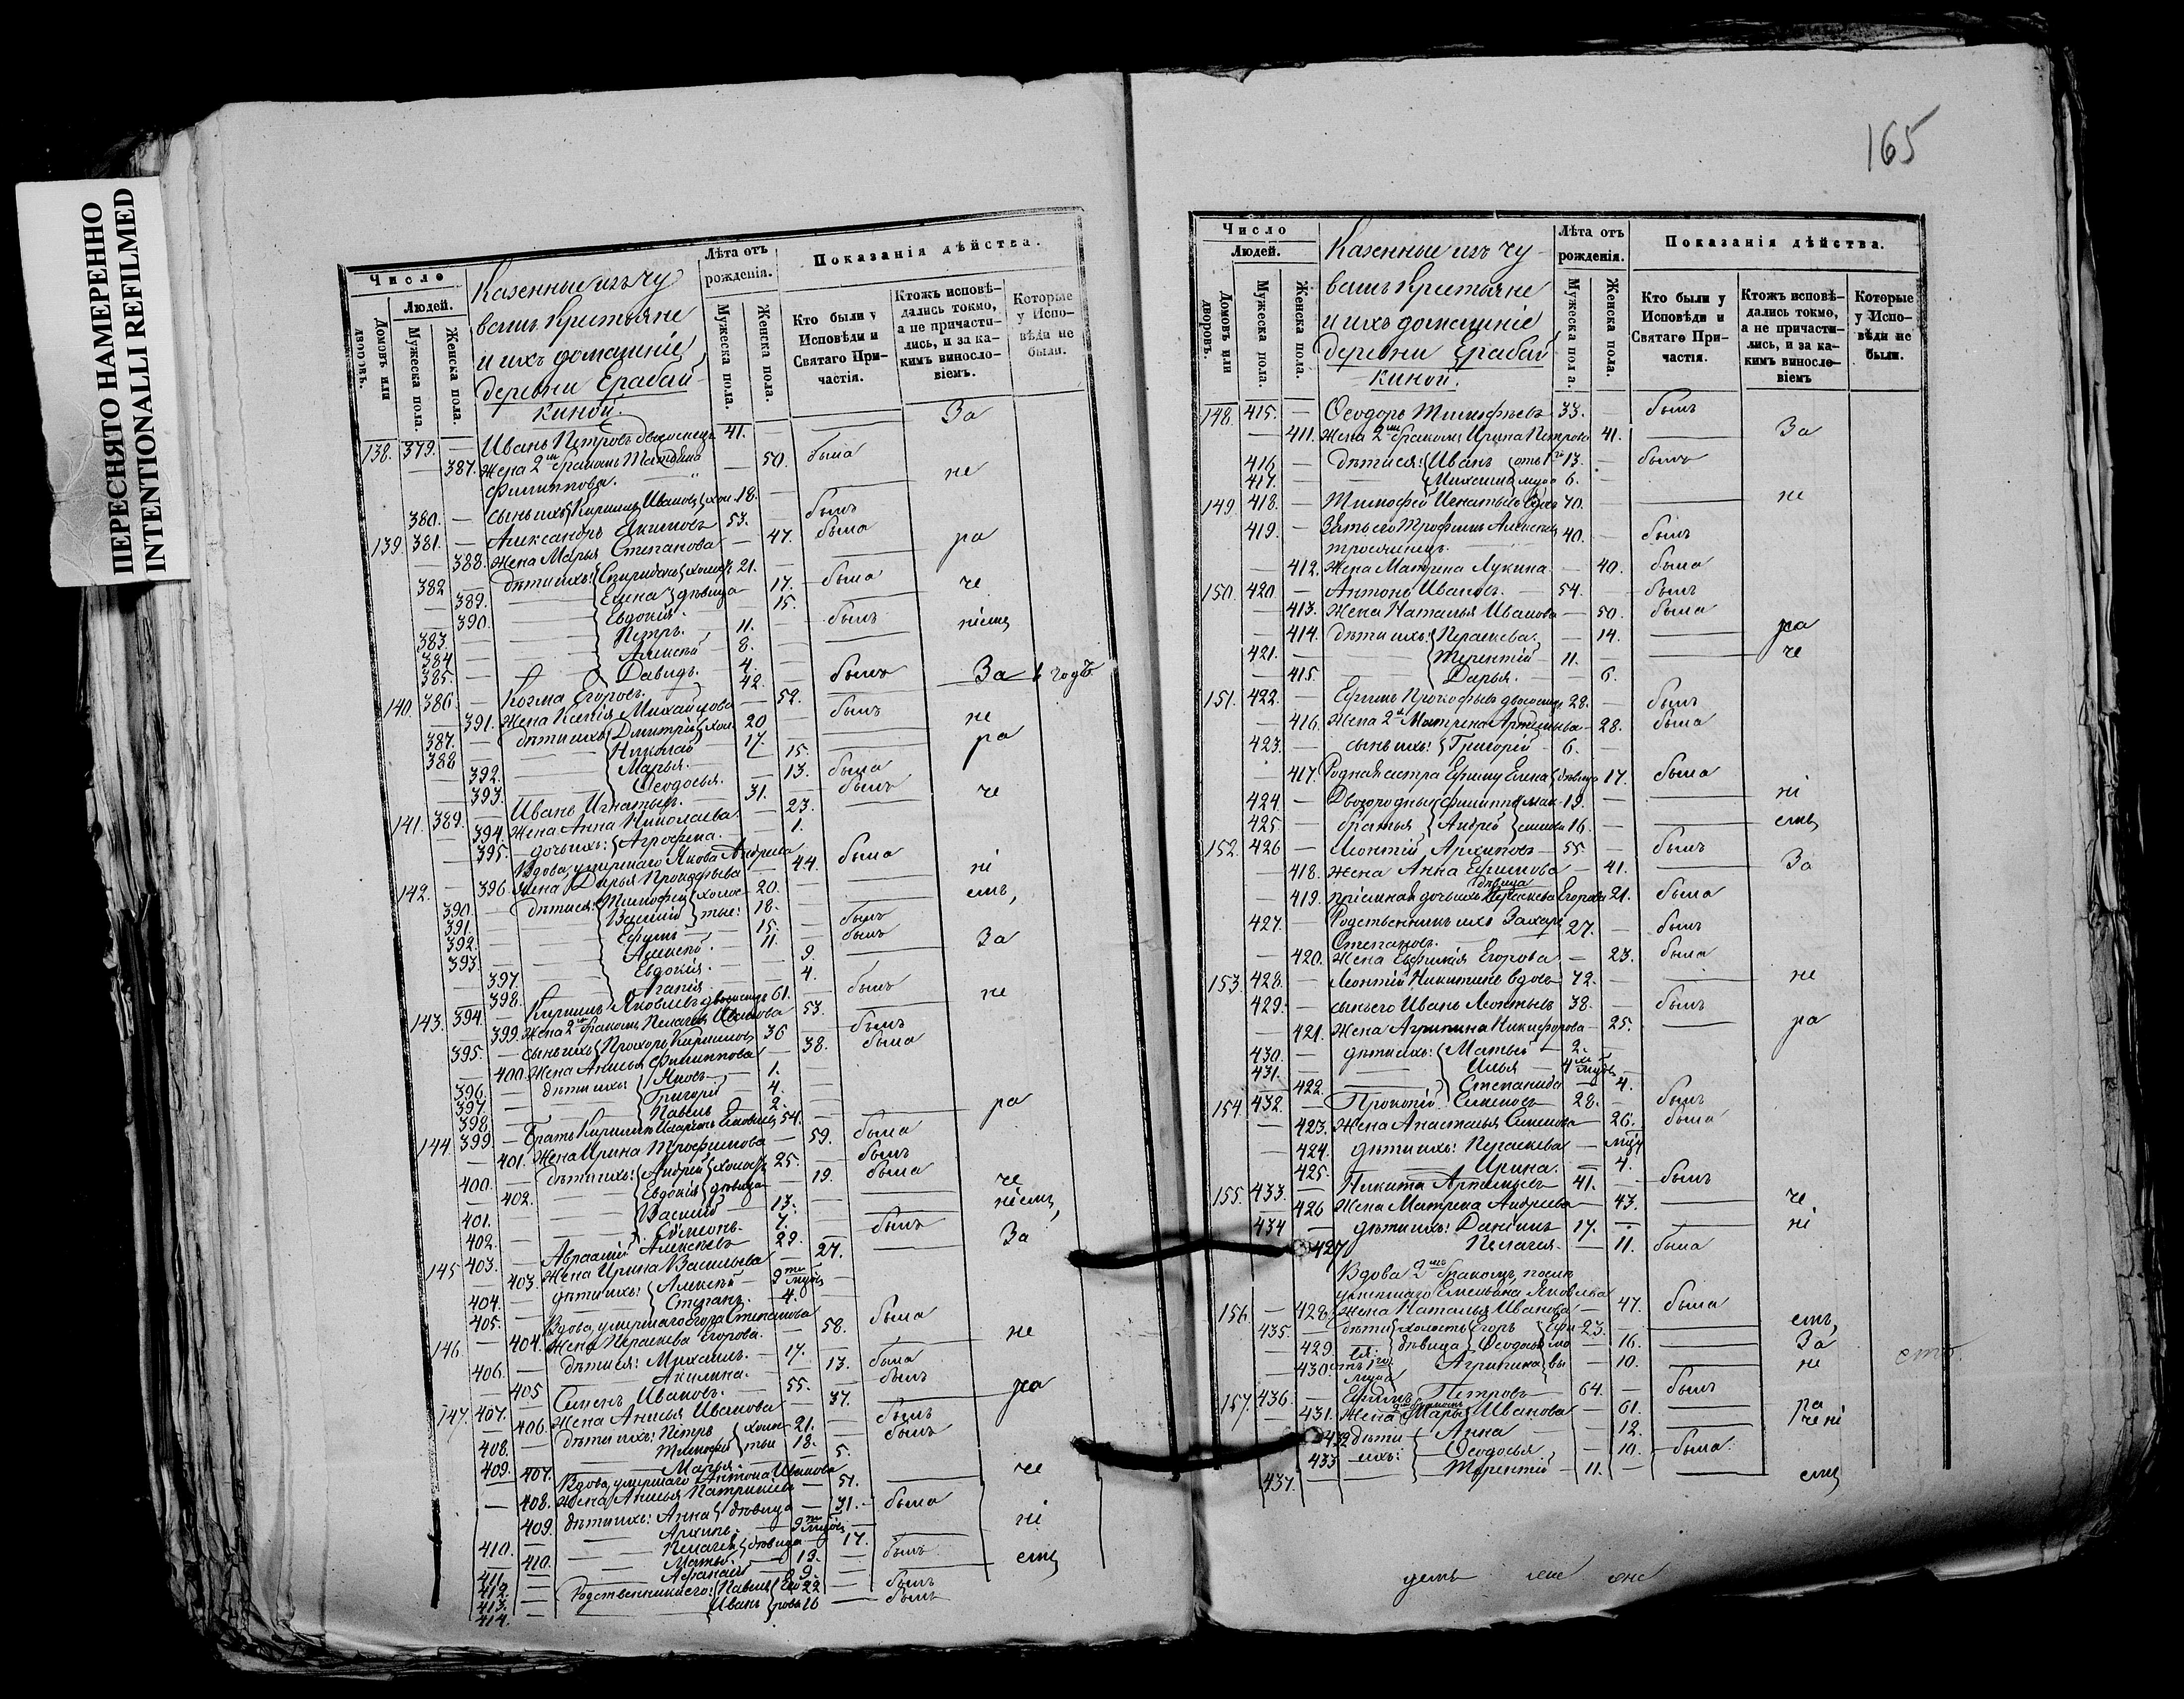 ПЕРЕСНЯТО НАМЕРЕННО
INTENTIONALLI REFILMED
Число
Людей.
Домовъ или дворовъ.
Мужеска пола.
Женска пола.
Казенные изъ чу
вашъ Крестьяне
и ихъ домашніе
деревни Ерабай-
киной.
Лѣта отъ рожденія.
Мужеска пола.
Женска пола.
Показанія дѣйства.
Кто были у Исповѣди и Святаго Причастія.
Ктожъ исповѣ-
дались токмо,
а не причасти-
лись, и за ка-
кимъ винисло-
віемъ.
Которые
у Испо-
вѣди не
были.
138. 379. — Иванъ Петровъ двоеженецъ 41. — За
— 387. Жена 2мъ бракомъ Татьяна — 50. была
Филиппова. не
380. — сынъ ихъ Кириллъ Ивановъ хол. 18. —
139 381. — Александръ Якимовъ 53. — былъ
— 388. Жена Марья Степанова — 47. была ра
382 — дѣти ихъ: Спиридонъ холост 21. —
— 389. Елена дѣвица — 17. была че
— 390. Евдокія. — 15.
383. — Петръ. — 11. — былъ ніемъ
384 — Алексѣй — 8. —
385. — Давидъ. — 4. —
140. 386 — Козма Егоровъ. 42. — былъ За 1 годъ
— 391. Жена Ксенія Михайлова — 52.
387. — дѣти ихъ Дмитрій хол. 20 — былъ не
388 — Николай — 17. — ра
— 392. Марья. — 15.
— 393. Ѳеодосья. — 13. была
141. 389. — Иванъ Игнатьевъ. — 31. — былъ че
— 394 Жена Анна Николаева. — 23.
— 395. дочь ихъ: Агрофена. — 1.
Вдова, умершаго Якова Андреева
142. — 396 жена Дарья Прокофьева — 44. была ні
390. — дѣти ея: Тимофей холос 20. — емъ,
391. — Василій тые: 18. —
392. — Ефимъ — 15. — былъ
393. — Алексѣй. — 11. — былъ За
— 397. Евдокія. — 9.
— 398. Агапія. — 4.
143. 394. — Кириллъ Яковлевъ двоеженецъ 61. — былъ не
— 399. Жена 2мъ бракомъ Пелагея Иванова 53.
395. — сынъ ихъ Прохоръ Кирилловъ 36 — былъ
— 400. Жена Анисья Филиппова — 38. была
396. — дѣти ихъ: Яковъ — 1.
397. — Григорій — 4.
398 — Павелъ — 2. —
144. 399. — Братъ Кириллы 54. — ра
— 401. Жена Ирина Трофимова — 59. была
400. — дѣти ихъ: Андрей холост 25. — былъ
— 402. Евдокія дѣвица — 19. была
401. — Василій — 13. — че
402. — Сѵмеонъ. — 7. — ніемъ,
145 403. — Авраамій Алексѣевъ 29. — былъ За
— 403. Жена Ирина Васильева — 27.
404. — дѣти ихъ: Алексѣй —
405. — Степанъ. — 4. —
Вдова, умершаго Егора Степанова
146. — 404. Жена Параскева Егорова. — 58. была не
406. — дѣти ея: Михаилъ. — 17. —
— 405 Акилина. — 13. была
147. 407. — Семенъ Ивановъ. — 55. — былъ
— 406. Жена Анисья Иванова — 37. ра
408. — дѣти ихъ: Петръ холос 21. — былъ
409. — Тимофей тые 18. — былъ
— 407. Марья. — 5.
Вдова, умершаго Антона Иванова
— 408. Жена Анисья Патрикіева — 51. че
— 409 дѣти ихъ: Анна дѣвица — 31. была
410. — Архипъ. —
— 410. Пелагея дѣвица — 17. ні
411 — Матвѣй — 13. — былъ
412. — Афанасій — 9. — емъ
413. — Родственники его: Павелъ Его 22 — былъ
414. — Иванъ ровы 16 — былъ
165
Число
Людей.
Домовъ или дворовъ.
Мужеска пола.
Женска пола.
Казенные изъ чу-
вашъ Крестьяне
и ихъ домашніе
деревни Ерабай
киной.
Лѣта отъ рожденія.
Мужеска пола.
Женска пола.
Показанія дѣйства.
Кто были у Исповѣди и Святаго Причастія.
Ктожъ исповѣ-
дались токмо,
а не причасти-
лись, и за ка-
кимъ винисло-
віемъ
Которые
у Испо-
вѣди не
были.
148. 415. — Ѳеодоръ Тимофѣевъ 33. — былъ
— 411. Жена 2мъ бракомъ Ирина Петрова 41. За
416 — дѣти ея: Иванъ отъ 1го 13. — былъ
417. — Михаилъ мужа 6. —
149. 418. — Тимофей Игнатьевъ вдовъ 70. — не
419. — Зять его Трофимъ Алексѣевъ 40. — былъ
троеженецъ.
— 412. Жена Матрена Лукина — 40. была
150. 420 — Антонъ Ивановъ. — 54. — былъ
— 413. Жена Наталья Иванова — 50. была
— 414. дѣти ихъ: Параскева. — 14. ра
421. — Терентій — 11. — че
— 415. Дарья. — 6.
151. 422. — Ефимъ Прокофьевъ двоеженецъ 28. — былъ
— 416. Жена 2я Матрена Артемьева — 28. была
423. — сынъ ихъ: Григорій — 6. —
— 417. Родная сестра Ефиму Елена дѣвица 17. была
424. — Двоюродные Филиппъ Мак 19. — ні
425. — братья Андрей симовы 16. — емъ
152. 426 — Леонтій Архиповъ — 55. — былъ
— 418. жена Анна Ефимова — 41. За
— 419. пріемная дочь ихъ дѣвица Параскева Егорова 21. была
427. — Родственникъ ихъ Захаръ 27. — былъ
Степановъ.
— 420. Жена Евфимія Егорова. — 23. была
153. 428. — Леонтій Никитинъ вдовъ — 72. — не
429. — сынъ его Иванъ Леонтьевъ 38. — былъ
— 421. Жена Агрипина Никифорова — 25. ра
430. — дѣти ихъ: Матвѣй — 2. —
431. — Илья —
— 422. Степанида — 4.
154. 432. — Прокопій Семеновъ — 28. — былъ
— 423. Жена Анастасья Семенова — 26. была
— 424. дѣти ихъ: Параскева —
— 425. Ирина. — 4.
155. 433. — Никита Артемьевъ — 41. — былъ
— 426 Жена Матрена Андреева — 43. че
434 — дѣти ихъ: Даніилъ — 17. — ні
— 427 Пелагея. — 11. была
Вдова 2мъ бракомъ, послѣ
умершаго Емельяна Яковлева
156. — 428. Жена Наталья Иванова — 47. была
435. — дѣти холостъ Егоръ Ефи 23. — емъ,
— 429. ея: дѣвица Ѳеодосья мо — 16. За
— 430. отъ 1го мужа Агрипина вы — 10. не
157. 436. — Ефимъ Петровъ — 64. — былъ
— 431. Жена 2мъ бракомъ Марья Иванова — 61. ра
— 432 дѣти Анна — 12. че ні
— 433 ихъ: Ѳеодосья — 10. была
437. — Терентій — 11. — емъ